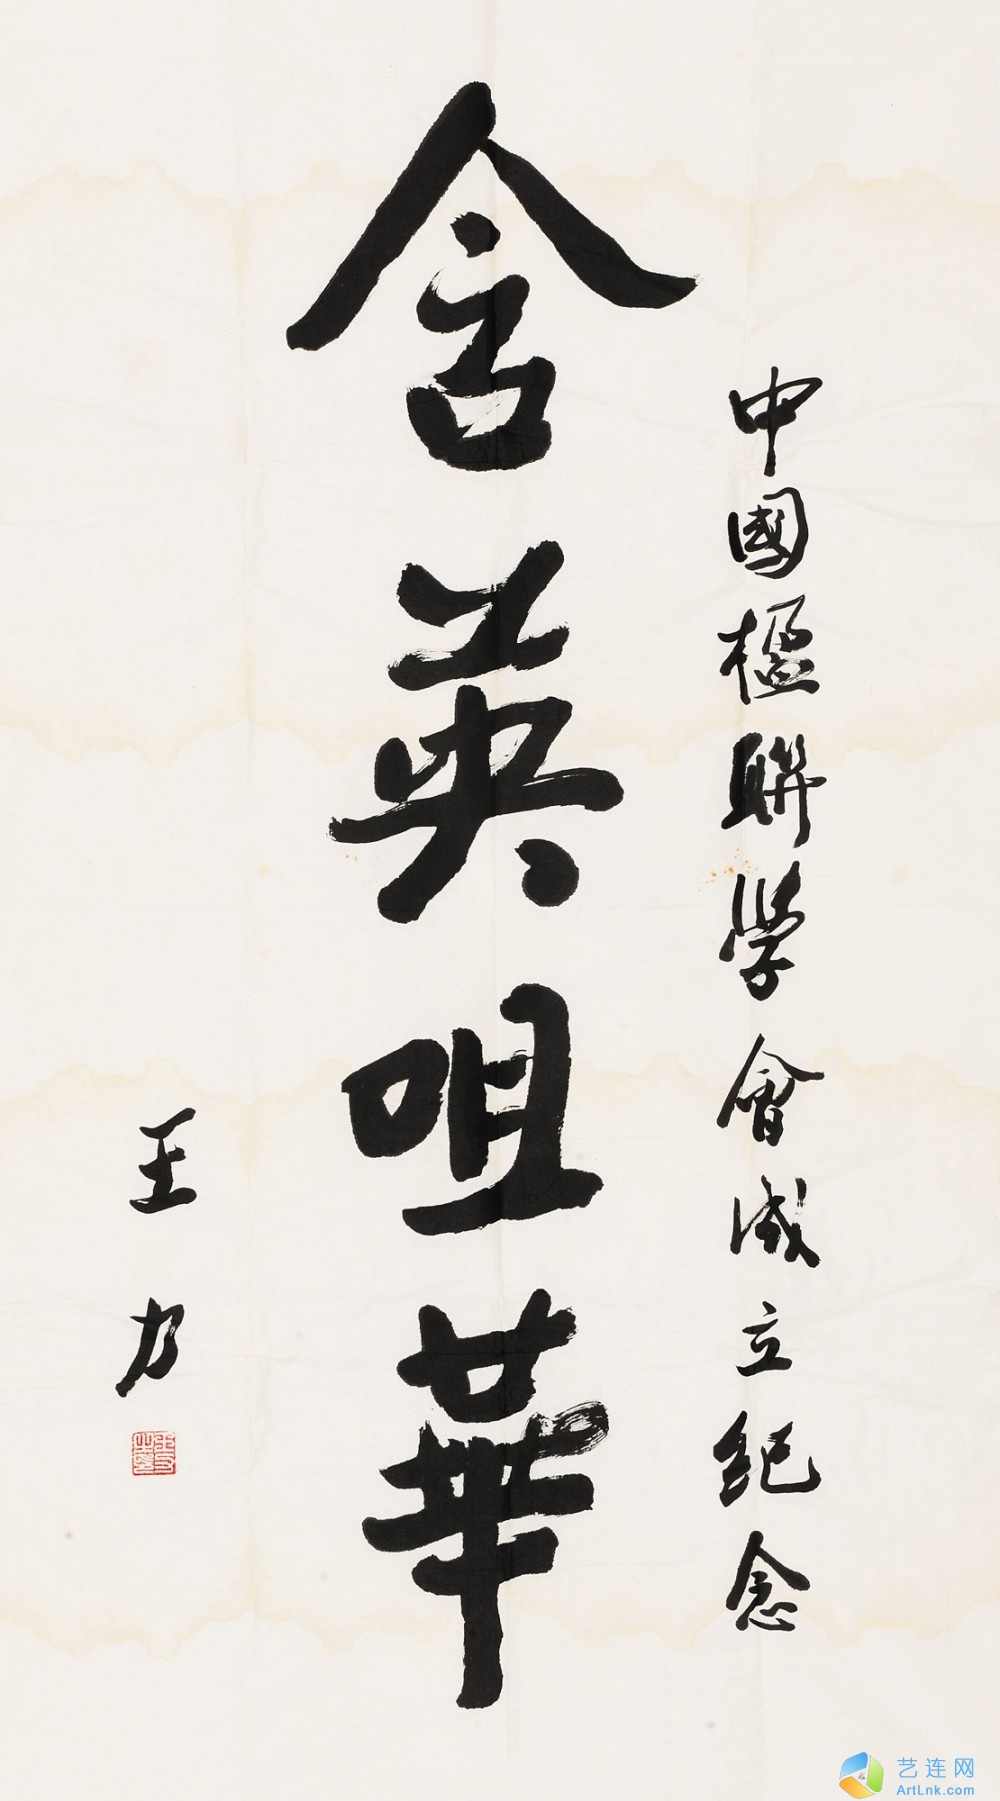 中國楹聯學會成立紀念
含英咀華
王力
艺连网
ArtLnk.com